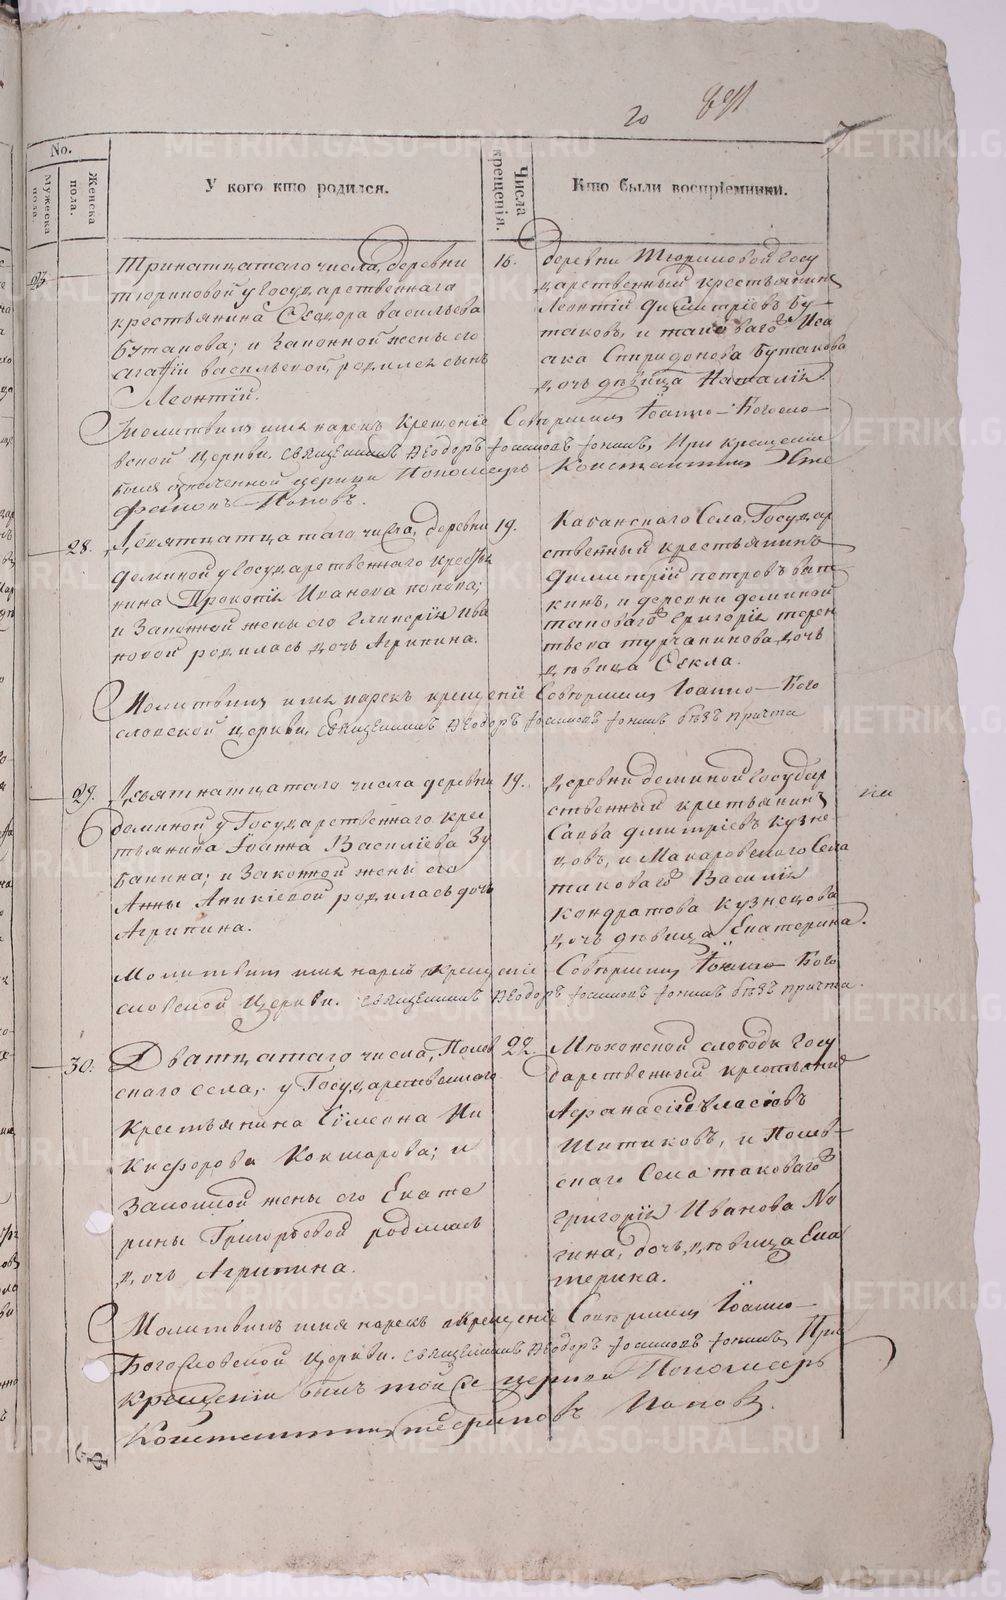 METRIKI.GASO-URAL.RU
No.
Мужеска пола.
Женска пола.
У кого кто родился.
Числа крещенія.
Кто были воспріемники.
Тринатцатаго числа, деревни
Тюриковой у Государственнаго
крестьянина Ѳеодора Васильева
Бутакова; и законной жены его
Агафіи Васильевой, родился сынъ
Леонтій.
16.
деревни Тюриковой Госу
дарственный крестьянинъ
Леонтій Димитріевъ Бу-
таковъ, и таковаго Иса
ака Спиридонова Бутакова
дочь дѣвица Наталія.
Молитвилъ имя нарекъ Крещеніе Совершилъ Іоанно-Богосло-
вской Церкви, священникъ Ѳеодоръ При крещеніи
былъ означенной церкви Пономарь Константинъ
Поповъ.
28.
Девятнатцатаго числа, деревни
Деминой у Государственнаго крестья
нина Прокопія Иванова Попова;
и Законной жены его Гликеріи Ива
новой родилась дочь Агрипина.
19.
Кабанскаго Села, Государ
ственный крестьянинъ
Димитрій Петровъ
кинъ, и деревни Деминой
таковаго Григорія Терен
тьева Турчанинова дочь
дѣвица Ѳекла.
Молитвилъ имя нарекъ крещеніе Совершилъ Іоанно-Бого
словской церкви, священникъ Ѳеодоръ безъ причта
29.
Девятнатцатаго числа деревни
Деминой у Государственнаго крес
тьянина Іоанна Василіева Зу
банина; и Законной жены его
Анны Аникіевой родилась дочь
Агрипина.
19.
деревни Деминой Государ
ственный крестьянинъ
Савва Дмитріевъ Кузне-
цовъ, и Макаровскаго Села
таковаго Василія
Кондратова Кузнецова
дочь дѣвица Екатерина.
Молитвилъ имя нарекъ крещеніе Совершилъ Іоанно Бого
словской Церкви. священникъ Ѳеодоръ безъ причта.
30.
Дватцатаго числа, Полев
скаго села, у Государственнаго
Крестьянина Симеона Ни
кифорова Кокшарова; и
Законной жены его Екате
рины Григорьевой родилась
дочь Агрипина.
22.
Мехонской слободы Госу
дарственный крестьянинъ
Афанасій Власовъ
Шитиковъ, и Полев-
скаго Села таковаго
Григорія Иванова Но
гина, дочь, дѣвица Ека
терина.
Молитвилъ имя нарекъ Крещеніе Совершилъ Іоанно-
Богословской Церкви. священникъ Ѳеодоръ При
Крещеніи былъ той же церкви Пономарь
Константинъ Поповъ.